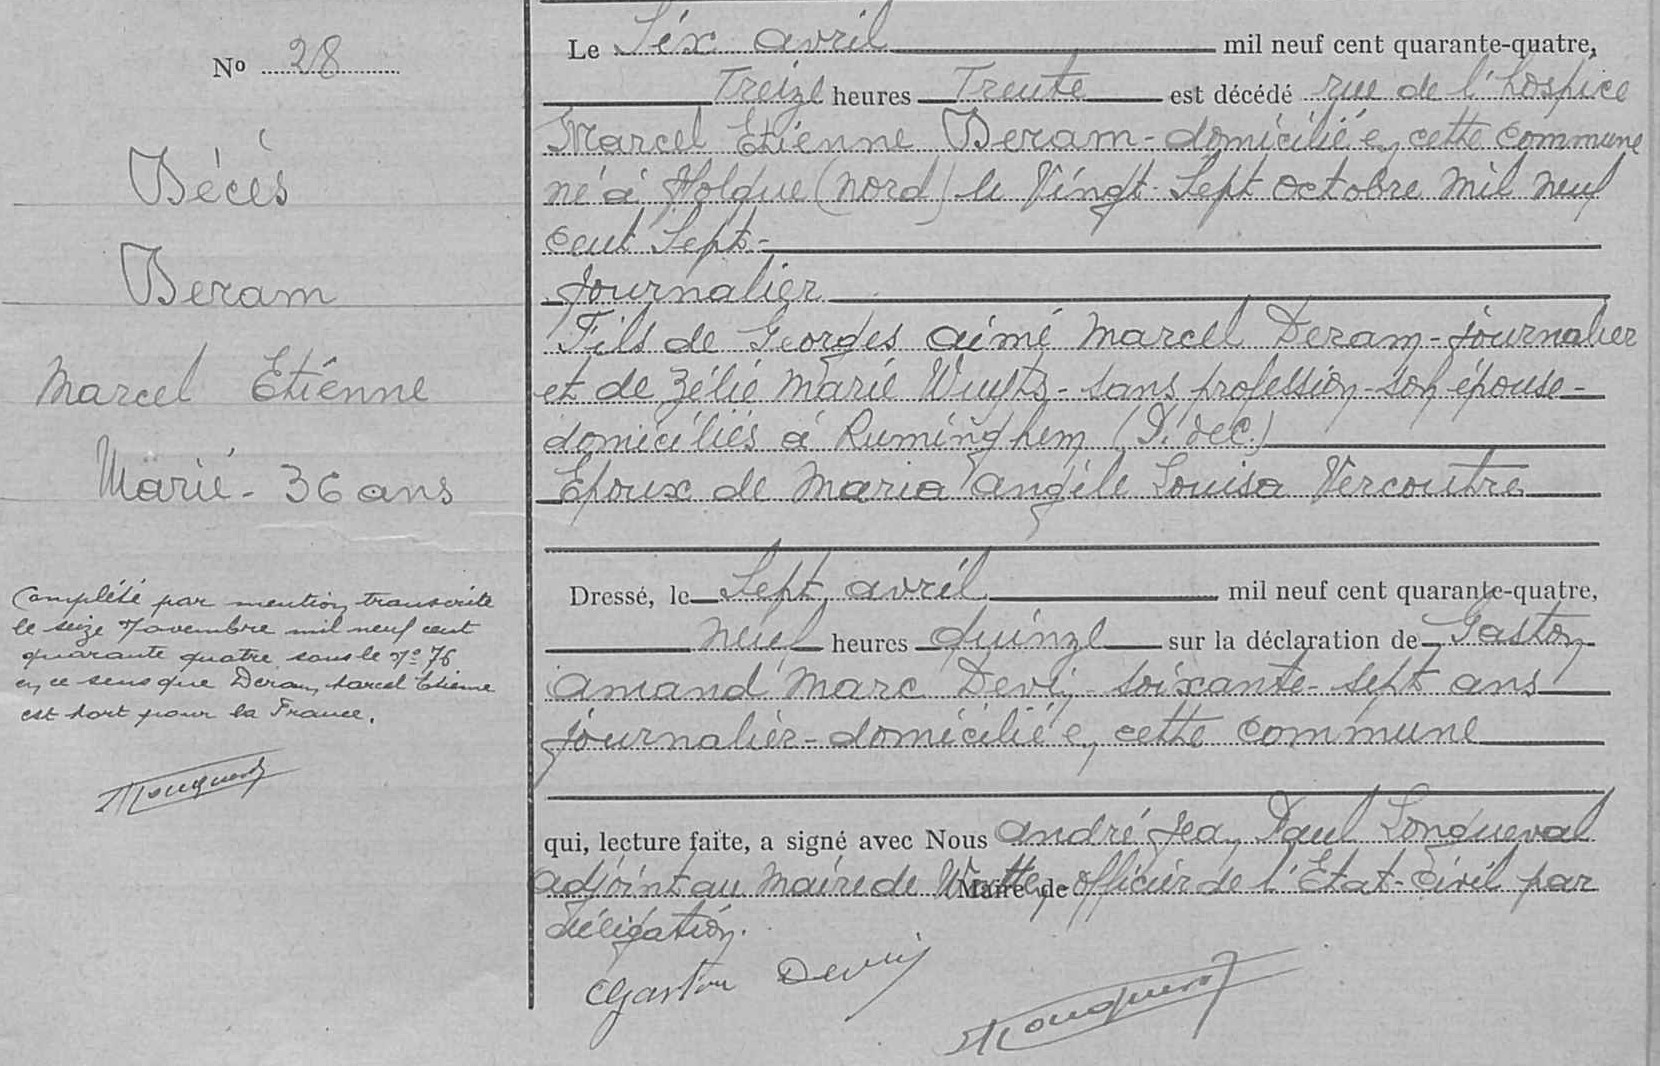 No 28
Décès
Deram
Marcel Etiénne
Marié - 36 ans
Complété par mention transcrite
le seize Novembre mil neuf cent
quarante quatre sous le No 76
en ce sens que Deram Marcel Etienne
est Mort pour la France.
Le Six avril mil neuf cent quarante-quatre,
Treize heures Trente est décédé rue de l'hospice
Marcel Etiénne Deram - domicilié en cette commune
né à Holque (Nord) le Vingt-Sept octobre mil neuf
cent Sept -
Journalier
Fils de Georges aimé Marcel Deram - journalier
et de Zélie Marie Wuyts - sans profession - son épouse -
domiciliés à Ruminghem (P. de C.)
Epoux de Maria Angèle Louisa Vercoutre
Dressé, le Sept avril mil neuf cent quarante-quatre,
neuf heures quinze sur la déclaration de Gaston
Amand Marc Devij - soixante-sept ans
journalier - domicilié en cette commune
qui, lecture faite, a signé avec Nous André Jean Paul Longueval
adjoint au Maire de Watten, officier de l'Etat-Civil par
Maire de
délégation.
Gaston Devij